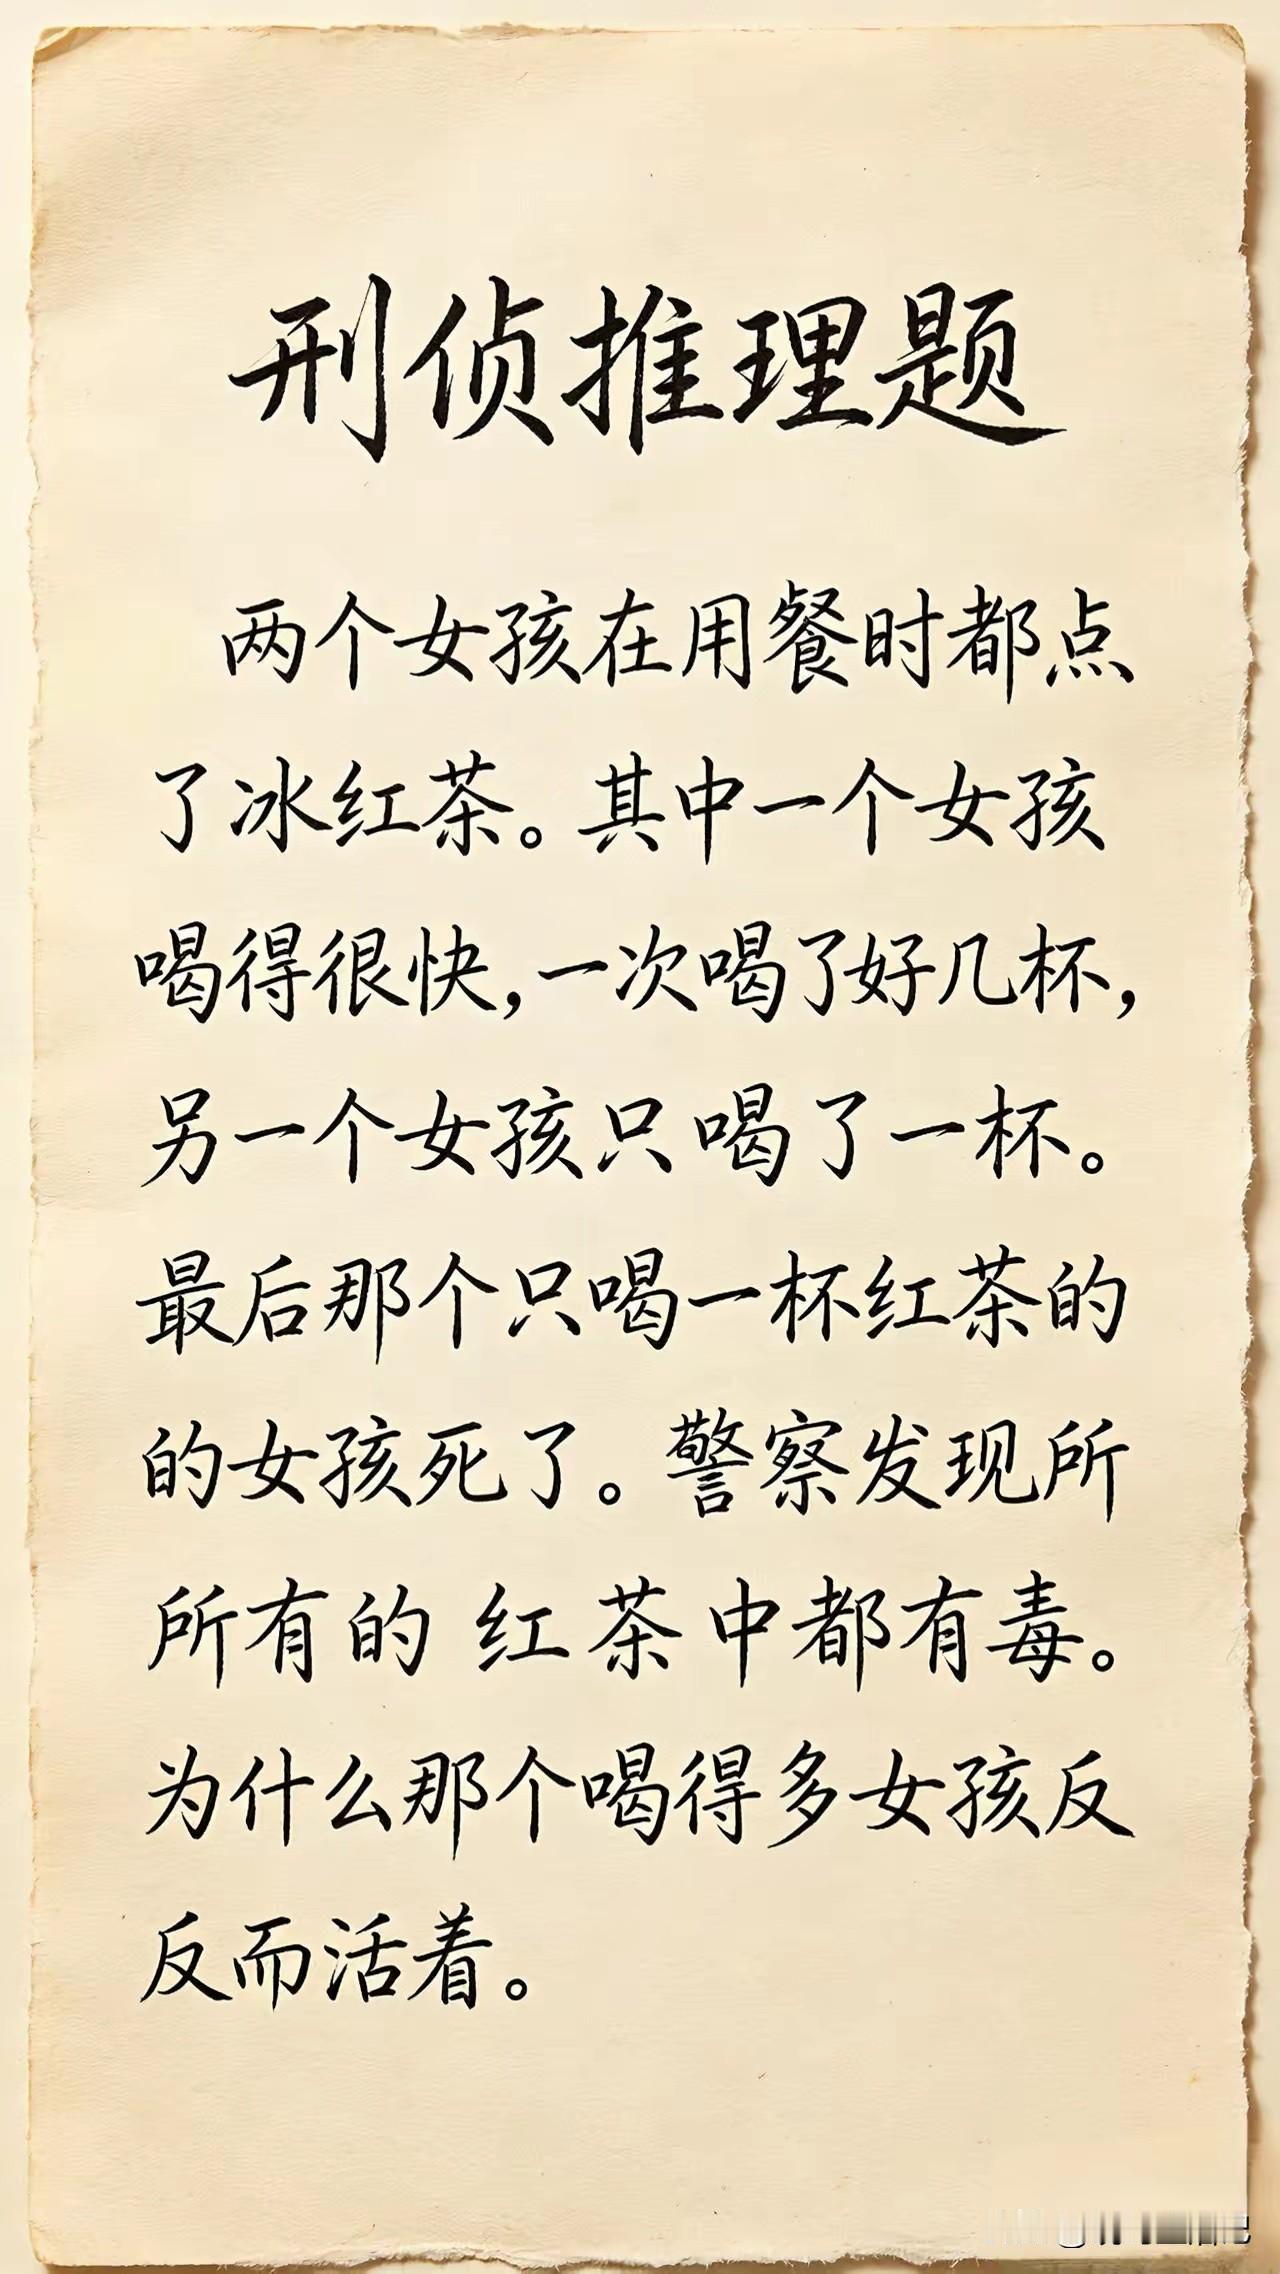 刑侦推理题
两个女孩在用餐时都点
了冰红茶。其中一个女孩
喝得很快，一次喝了好几杯，
另一个女孩只喝了一杯。
最后那个只喝一杯红茶的
的女孩死了。警察发现所
所有的红茶中都有毒。
为什么那个喝得多女孩反
反而活着。